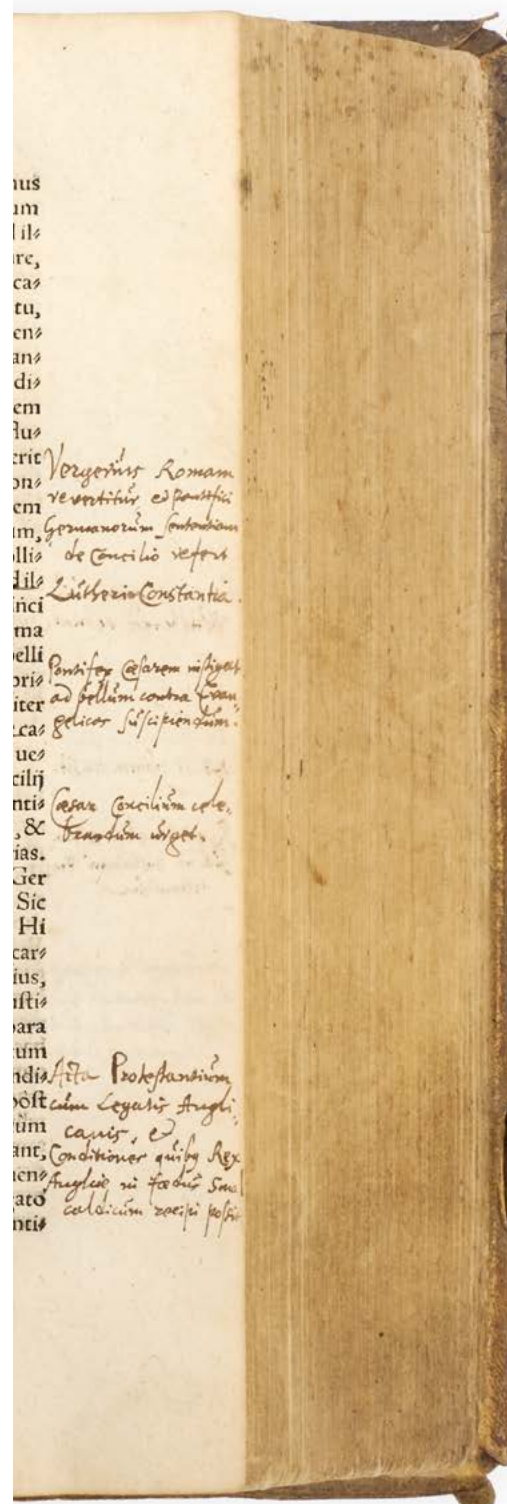 nus
um
l il⸗
re,
ca⸗
tu,
en⸗
an⸗
di⸗
em
flu⸗
erit
on⸗
em
ım,
olli⸗
d il⸗
inci
ma
elli
pri⸗
iter
ca⸗
ue⸗
cilij
nti⸗
, &
ias.
Ger
Sic
Hi
car⸗
ius,
usti⸗
para
tum
ndi⸗
pòst
ùm
ant,
uen⸗
ato
nti⸗
Vergerius Romam
revertitur et pontifici
Germanorum sententiam
de Concilio refert
Lutheri Constantia.
Pontifex Cæsarem instigat
ad bellum contra Evan
gelicos suscipiendum.
Cæsar Concilium cele,
brandum urget.
Acta Protestantium
cum Legatis Angli,
canis, et
Conditiones quibus Rex
Angliæ in fœdus Smal
caldicum recipi possit